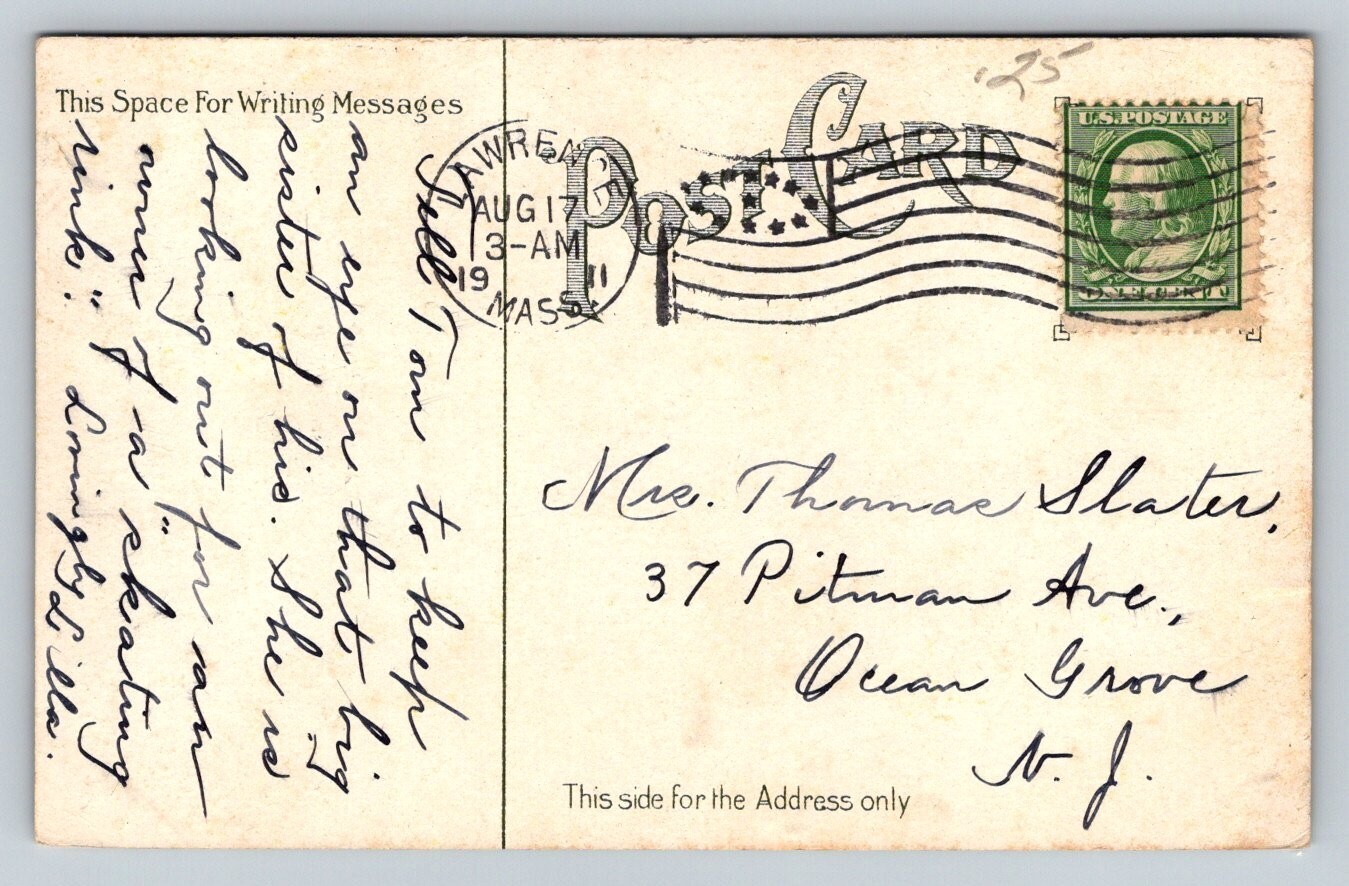 This Space For Writing Messages
Tell Tom to keep
an eye on that big
sister of his. She is
looking out for an
owner of "a skating
rink." Lovingly Lilla.
POST CARD
'25
LAWRENCE
AUG 17
3-AM
19 11
MASS.
U.S.POSTAGE
ONE CENT
Mrs. Thomas Slater,
37 Pitman Ave.,
Ocean Grove
N. J.
This side for the Address only